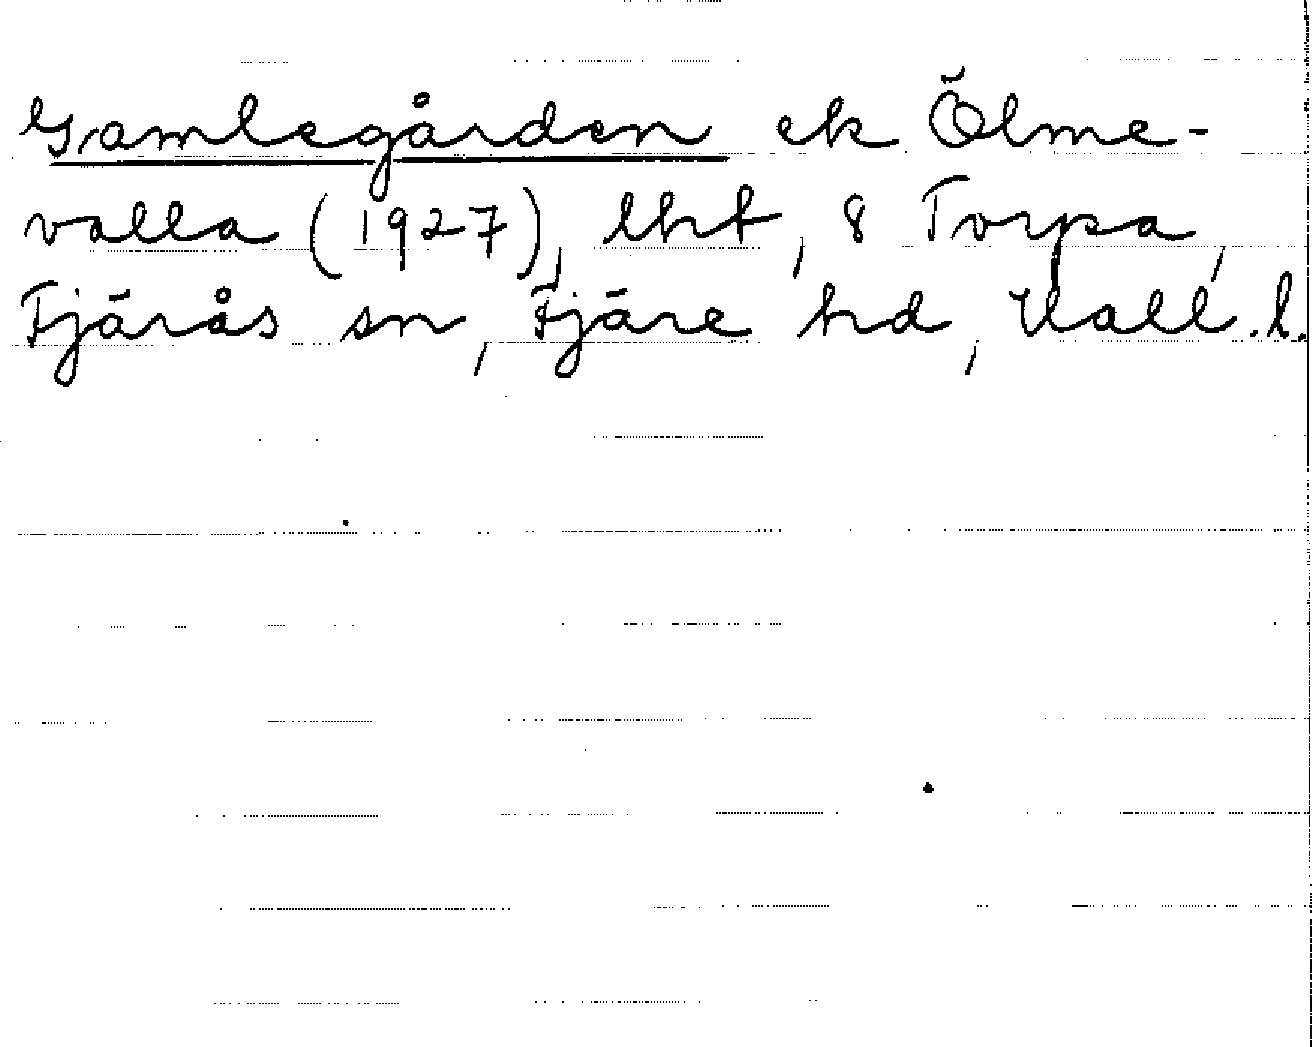 Gamlegården ek Ölme-
valla (1927), lht, 8 Torpa,
Fjärås sn, Fjäre hd, Hall. l.